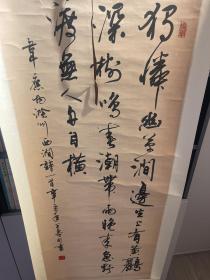 獨憐幽草澗邊生上有黃鸝
深樹鳴春潮帶雨晚來急野
渡無人舟自橫
韋應物滁州西澗詩一首